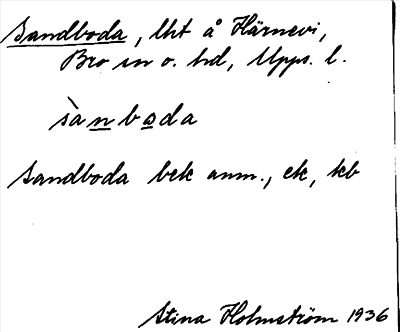 Sandboda, lht å Härnevi,
Bro sn o. hd, Upps. l.
sànboda
Sandboda bek anm., ek, kb
Stina Holmström 1936